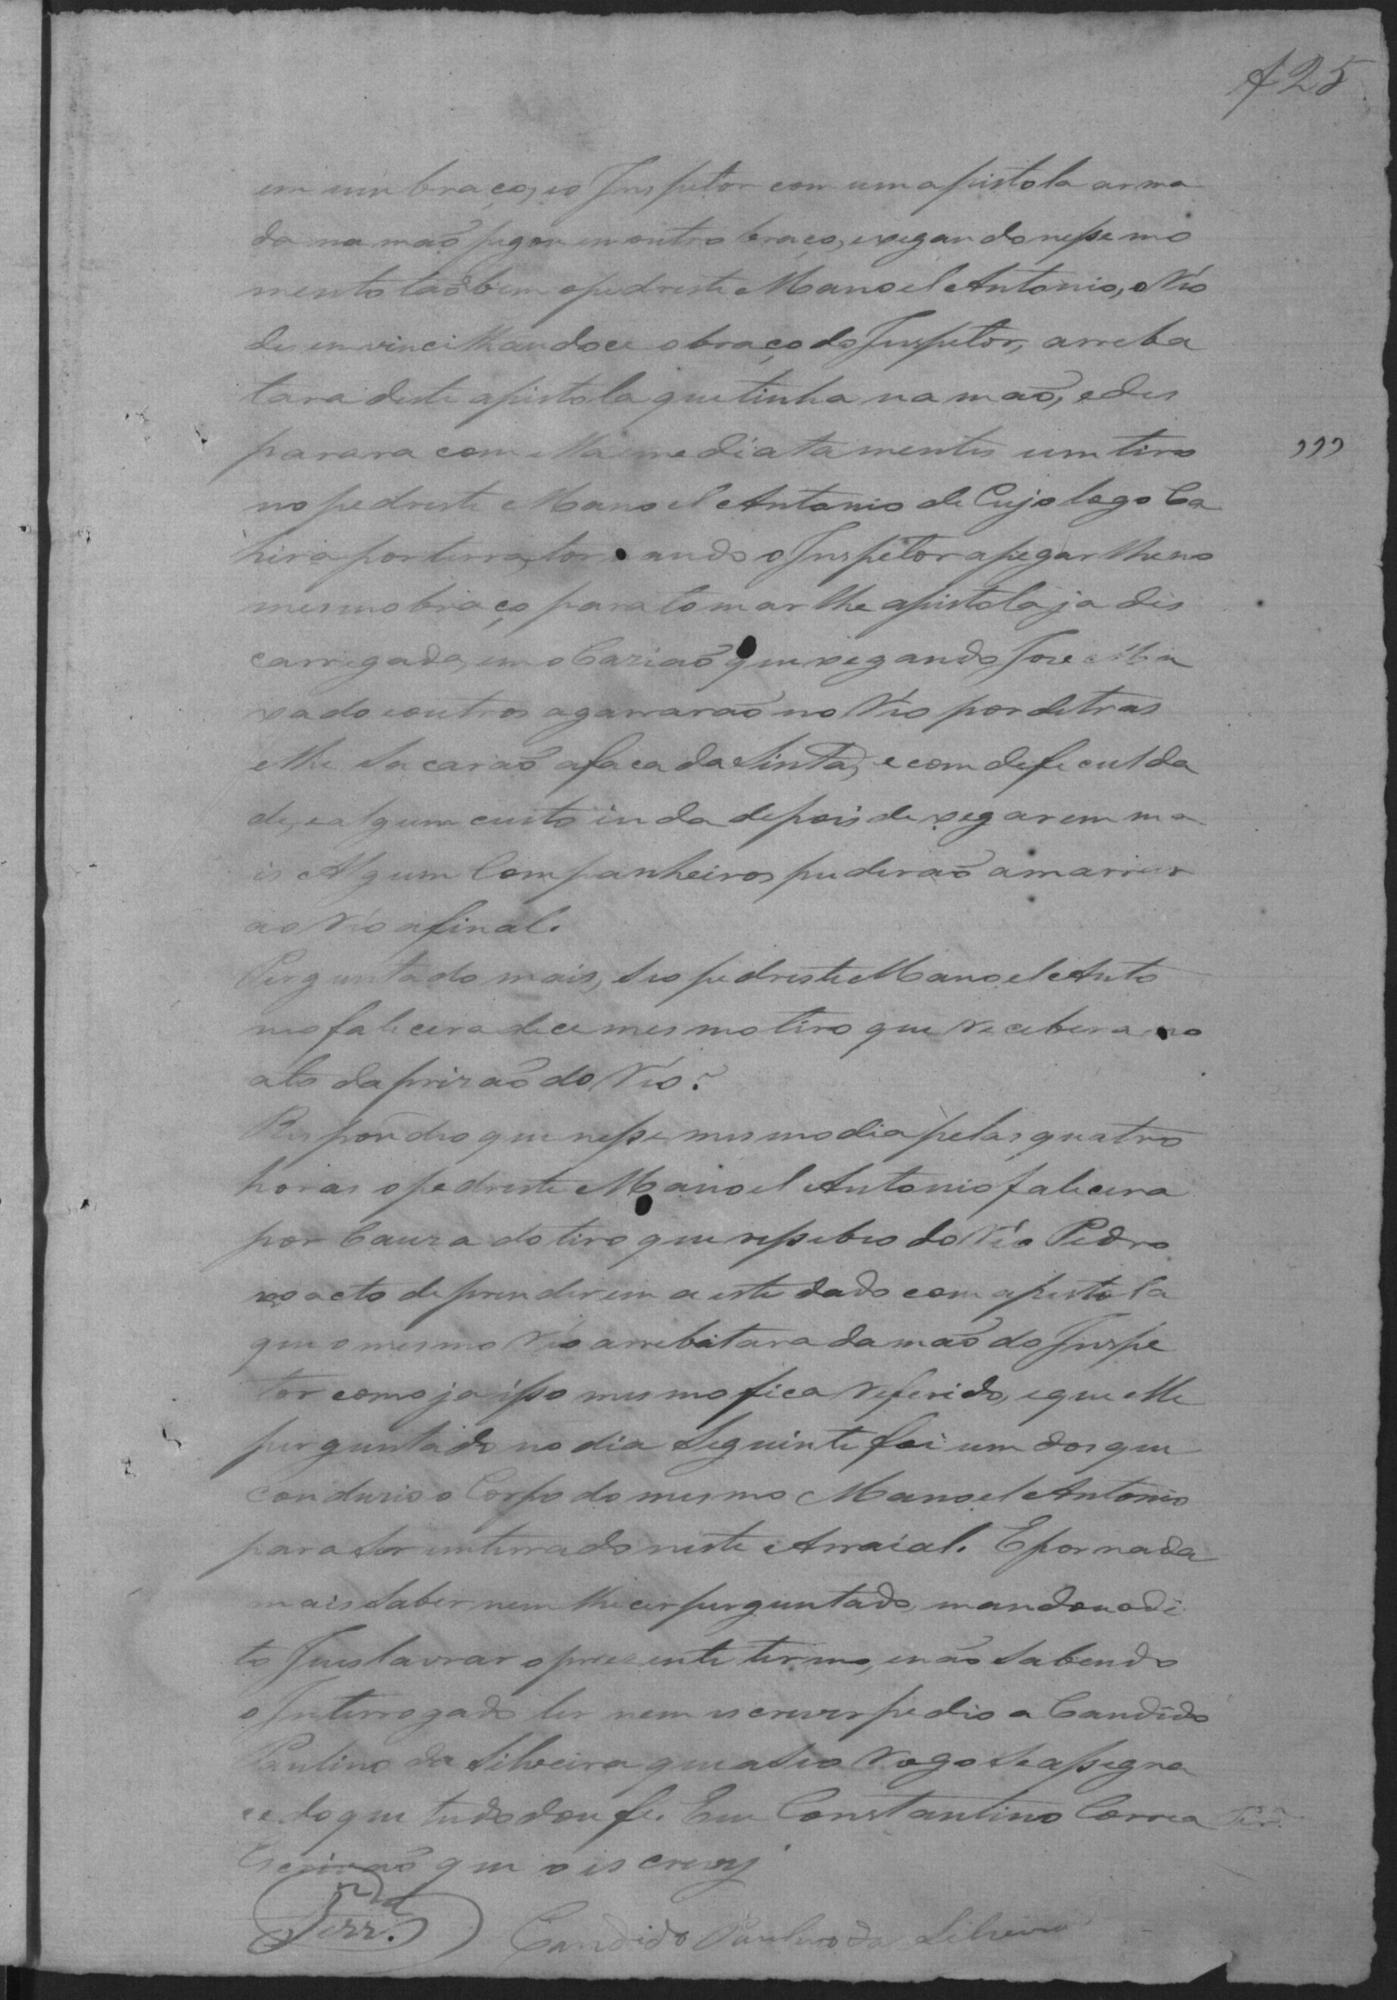 125
em um braço, e o Inspetor com uma pistola arma
da na maõ pegou em outro braço, exegando nesse mo
mento taõbem o pedreste Manoel Antonio, o Réo
desenvincilhandoce o braço do Inspetor, arreba
tara deste apistola que tinha na maõ, e des
parara com ella imediatamentes um tiro
no pedreste Manoel Antonio de Cujo logo Ca
hira por terra, tornando o Inspetor apegar lhe no
mesmo braço para tomar lhe apistola ja des
carregada, em o Caziaõ que xegando Jose
xado eoutros agarraraõ no Réo por detras
elhe Sacaraõ afaca da Sinta, e com defeculda
de, e algum custo inda depois de xegarem ma
is Algum Companheiros puderaõ amarrar
ao Réo afinal.
Perguntado mais, Seo pedreste Manoel Anto
nio falecera dece mesmo tiro que recebera no
ato da prizaõ do Réo?
Respondeo que nesse mesmo dia pelas quatro
horas o pedreste Manoel Antonio falecera
por Cauza do tiro que ressebeo do Réo Pedro
no acto de prenderem a este dado com apistola
que o mesmo Réo arrebatara da maõ do Inspe
tor como ja isso mesmo fica referido, e que elle
perguntado no dia Seguinte foi um dos que
Conduzio o Corpo do mesmo Manoel Antonio
para Ser enterrado neste Arraial. E por nada
mais Saber nem lhe cer perguntado, mandou o di
to Juis lavrar o prezente termo, e naõ Sabendo
o Interrogado ler nem escrever pedio a Candido
Paulino da Silveira que a Seo Rogo Se assegna
ce do que tudo dou fe. Eu Constantino Correa
Escrivaõ que o iscrevy
Ferr.ª
Candido Paulino da Silveira